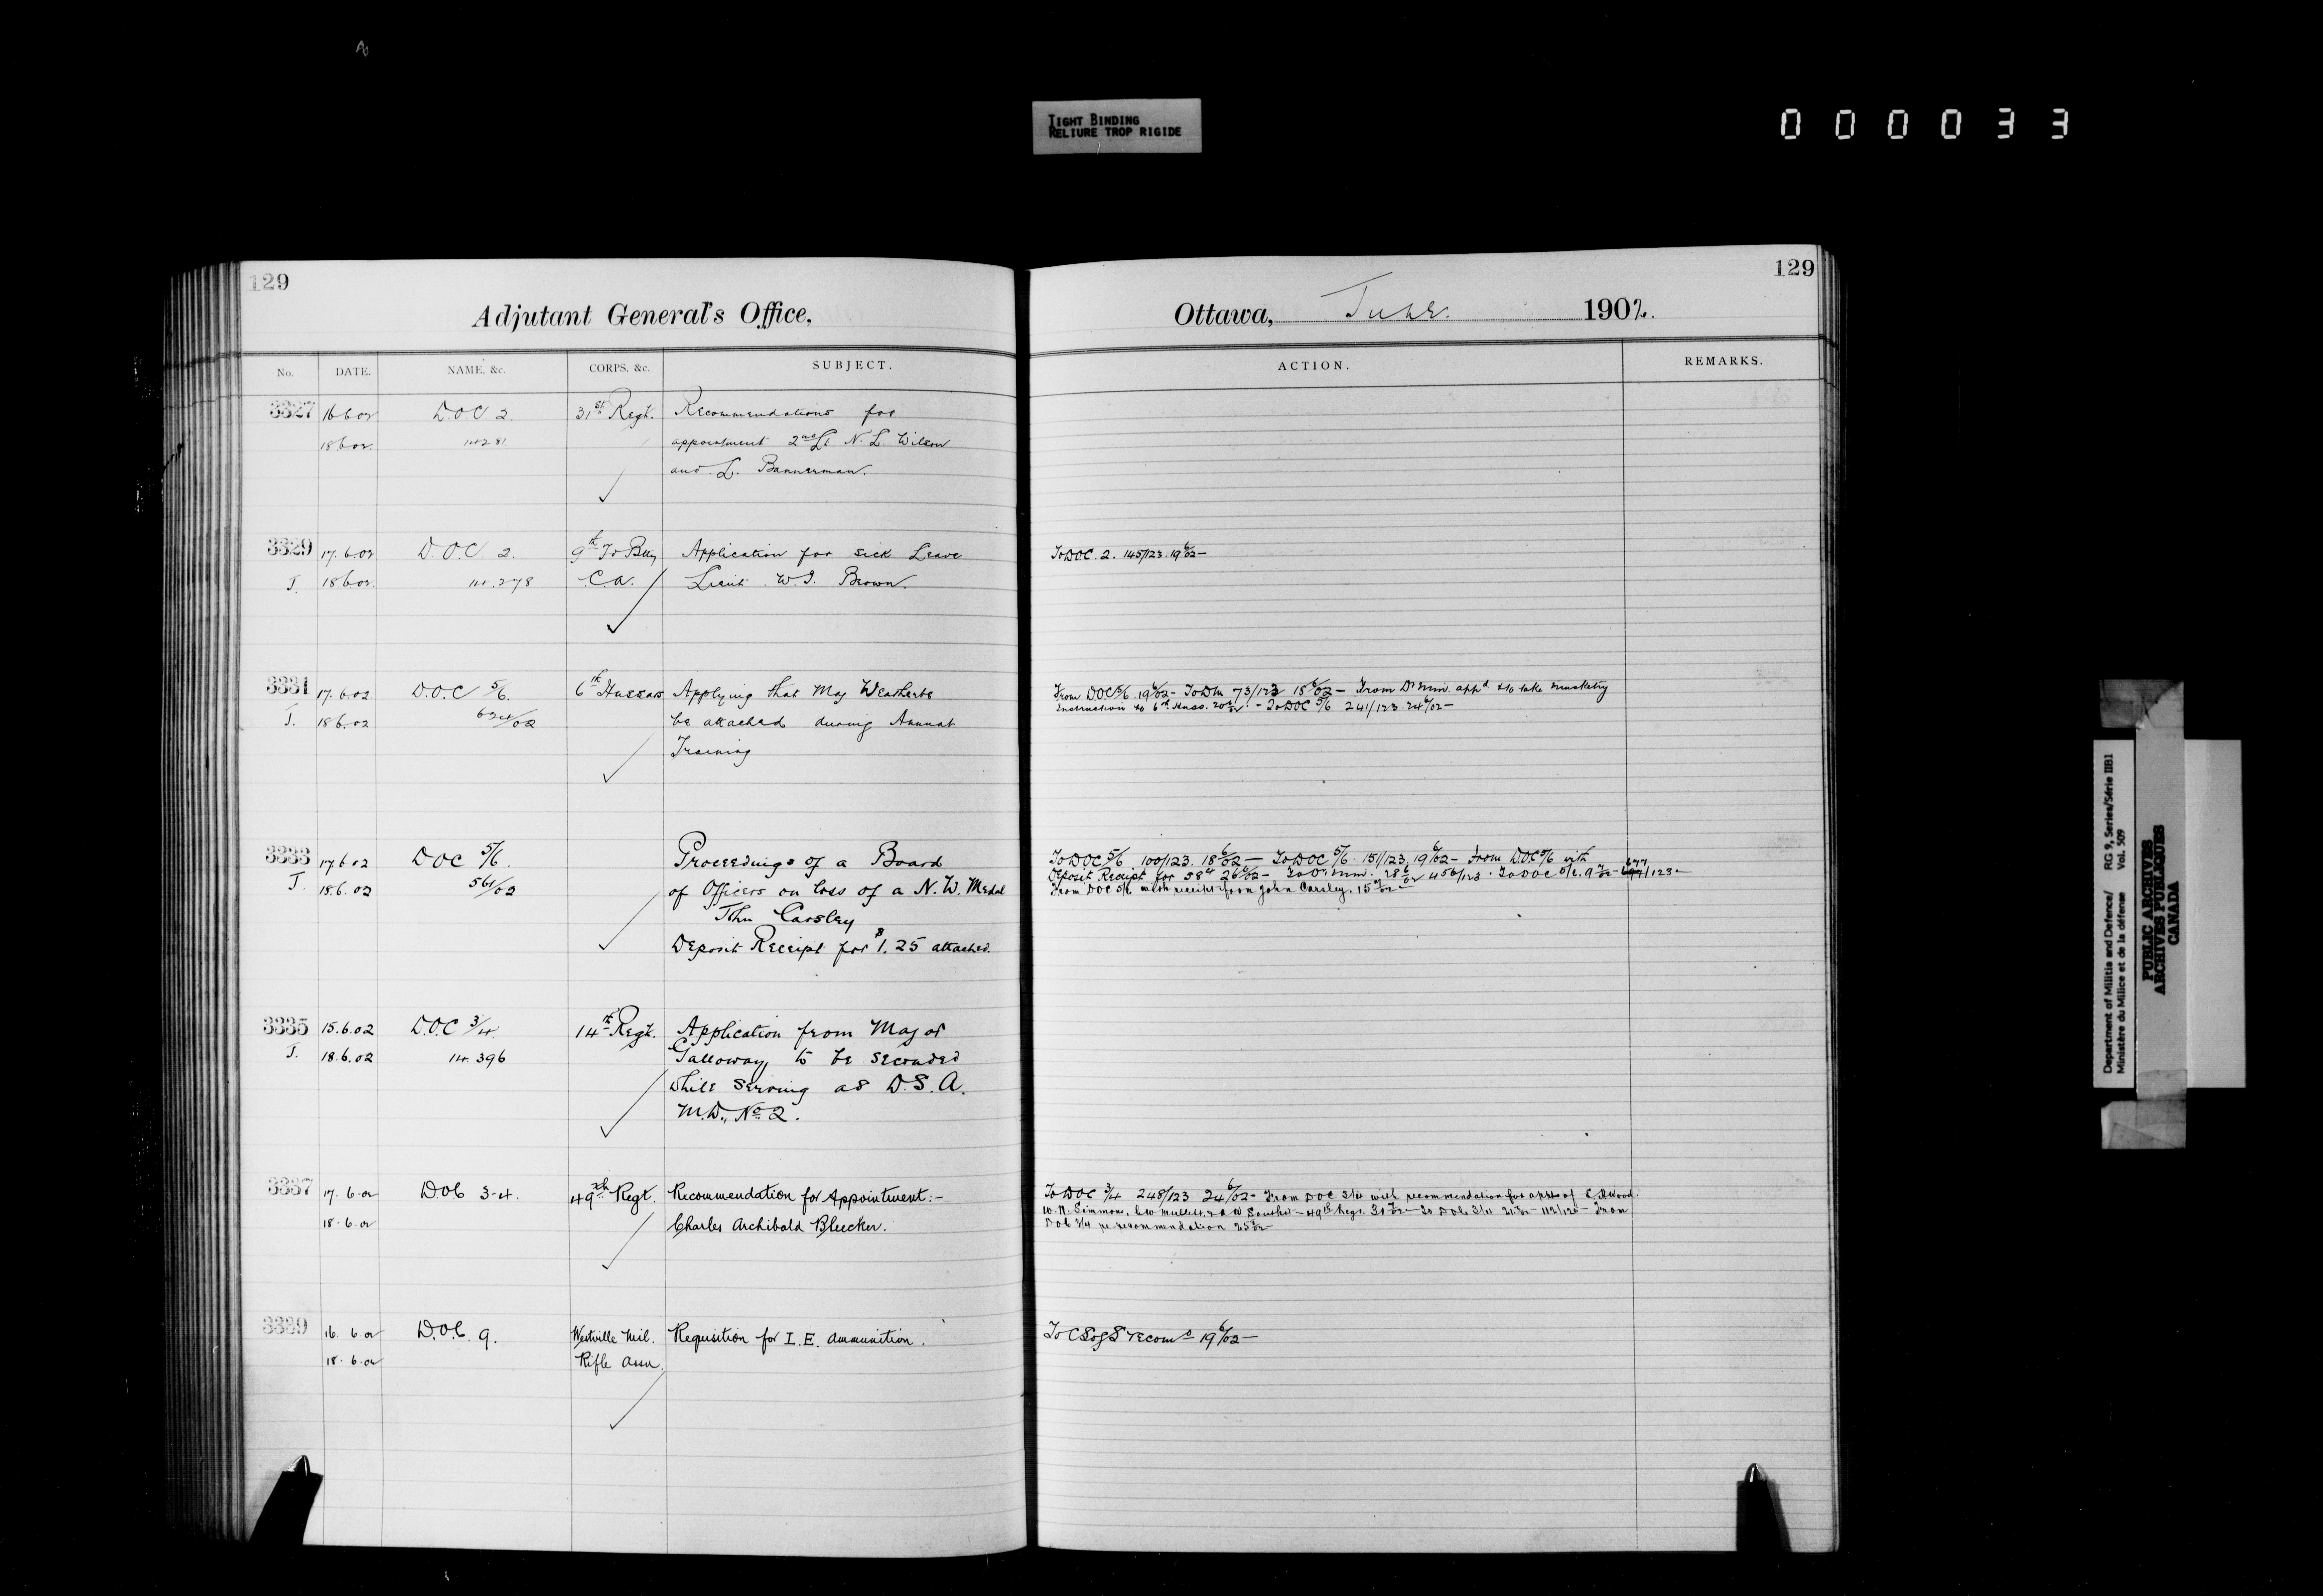 TIGHT BINDING
RELIURE TROP RIGIDE
000033
129
Adjutant General's Office,
No. DATE. NAME, &c. CORPS, &c. SUBJECT.
3327 16 6 02 D.O.C 2. 31st Regt. Recommendations for
18 6 02 appointment 2nd Lt N. L. Wilson
and L. Bannerman.
3329 17.6.02 D.O.C. 2. 9th Fd Bty Application for Sick Leave
T. 18 6 02 14.278 C.A. Lieut. W.J. Brown.
3331 17.6.02 D.O.C 5/6. 6th Hussars Applying that Maj Weatherbe
T. 18.6.02 be attached during Annual
Training
3333 17 6 02 DOC 5/6. Proceedings of a Board
T. 18.6.02 561/02 of Officers on loss of a N.W. Medal
John Carsley
Deposit Receipt for $1.25 attached.
3335 15.6.02 D.O.C 3/4. 14th Regt. Application from Major
T. 18.6.02 14.396 Galloway to be seconded
while serving as D.S.A.
M.D., No 2.
3337 17. 6 02 D.O.C 3-4. 49th Regt. Recommendation for Appointment:-
18. 6 02 Charles Archibald Bleecker.
3339 16. 6 02 D.O.C. 9. Westville Mil. Requisition for I.E. ammunition.
18. 6 02 Rifle Assn.
129
Ottawa, June 1902.
ACTION. REMARKS.
To DOC. 2. 145/123. 19 6/02 -
From DOC 5/6. 19 6/02 - To DM 73/123 18 6/02 - From D. Min. appd to take musketry
Instruction to 6th Huss. - To DOC 5/6 241/123. 24 6/02 -
To DOC 5/6 100/123. 18 6/02 - To DOC 5/6. 151/123. 19 6/02 - From DOC 5/6 with
Deposit Receipt for 26 6/02 - To D. Min. 28 6/02 456/123. To DOC 5/6. 9 7/02 - /123 -
From DOC 5/6 with receipt from John Carsley. 15 7/02 -
To DOC 3/4 248/123 24 6/02 - From DOC 3/4 with recommendation for appts of
W. N. Simmons, - 49th Regt. - To DOC 3/4 - From
DOC 3/4 re recommendation
To CSofS recomd 19 6/02 -
Department of Militia and Defence/ RG 9, Series/Série IIB1
Ministère du Milice et de la défense Vol. 509
PUBLIC ARCHIVES
ARCHIVES PUBLIQUES
CANADA